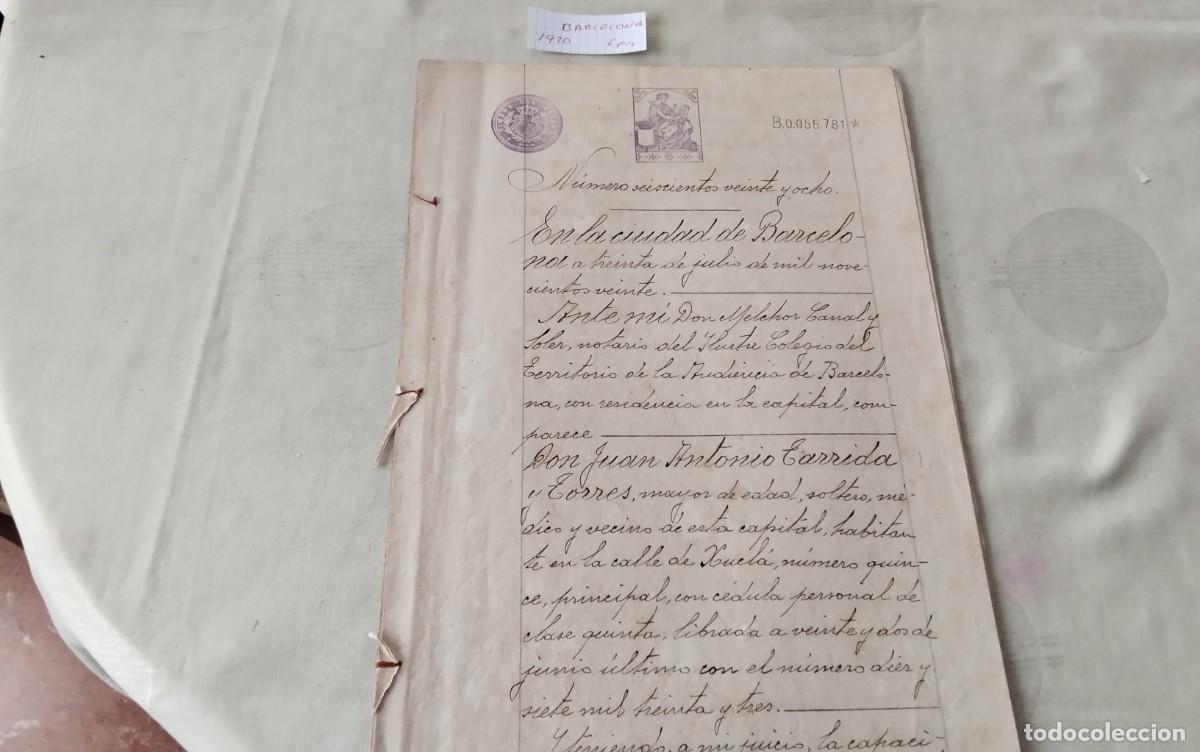 BARCELONA
1920
B.0.055.781*
Número seiscientos veinte y ocho.
En la ciudad de Barcelo-
na a treinta de julio de mil nove-
cientos veinte.
Ante mí Don Melchor Canal y
Soler, notario del Ilustre Colegio del
Territorio de la Audiencia de Barcelo-
na, con residencia en la capital, com-
parece
Don Juan Antonio Tarrida
y Torres, mayor de edad, soltero, mé-
dico y vecino de esta capital, habitan
te en la calle de Xuclá, número quin-
ce, principal, con cédula personal de
clase quinta, librada a veinte y dos de
junio último con el número diez y
siete mil treinta y tres.
Y teniendo, a mi juicio, la capaci-
todocoleccion